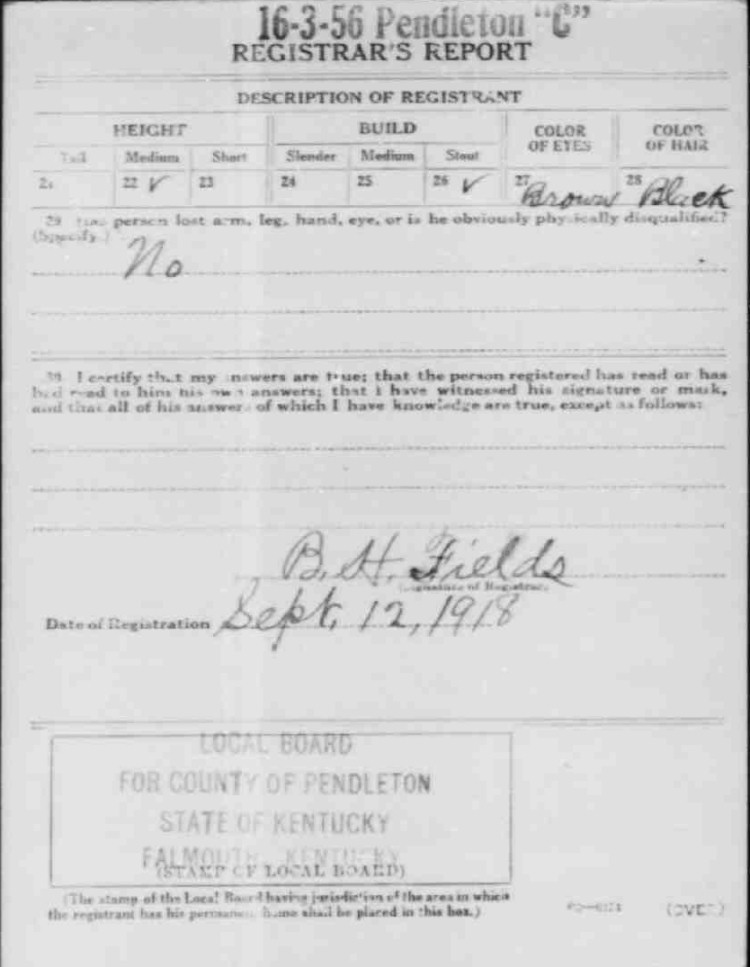 16-3-56 Pendleton "C"
REGISTRAR'S REPORT
DESCRIPTION OF REGISTRANT
HEIGHT BUILD COLOR OF EYES COLOR OF HAIR
Tall Medium Short Slender Medium Stout
21 22 ✓ 23 24 25 26 ✓ 27 Brown 28 Black
29 Has person lost arm, leg, hand, eye, or is he obviously physically disqualified?
(Specify.)
No
30 I certify that my answers are true; that the person registered has read or has
had read to him his own answers; that I have witnessed his signature or mark,
and that all of his answers of which I have knowledge are true, except as follows:
B. H. Fields
(Signature of Registrar)
Date of Registration Sept. 12, 1918
LOCAL BOARD
FOR COUNTY OF PENDLETON
STATE OF KENTUCKY
FALMOUTH, KENTUCKY
(STAMP OF LOCAL BOARD)
(The stamp of the Local Board having jurisdiction of the area in which
the registrant has his permanent home shall be placed in this box.)
(OVER)